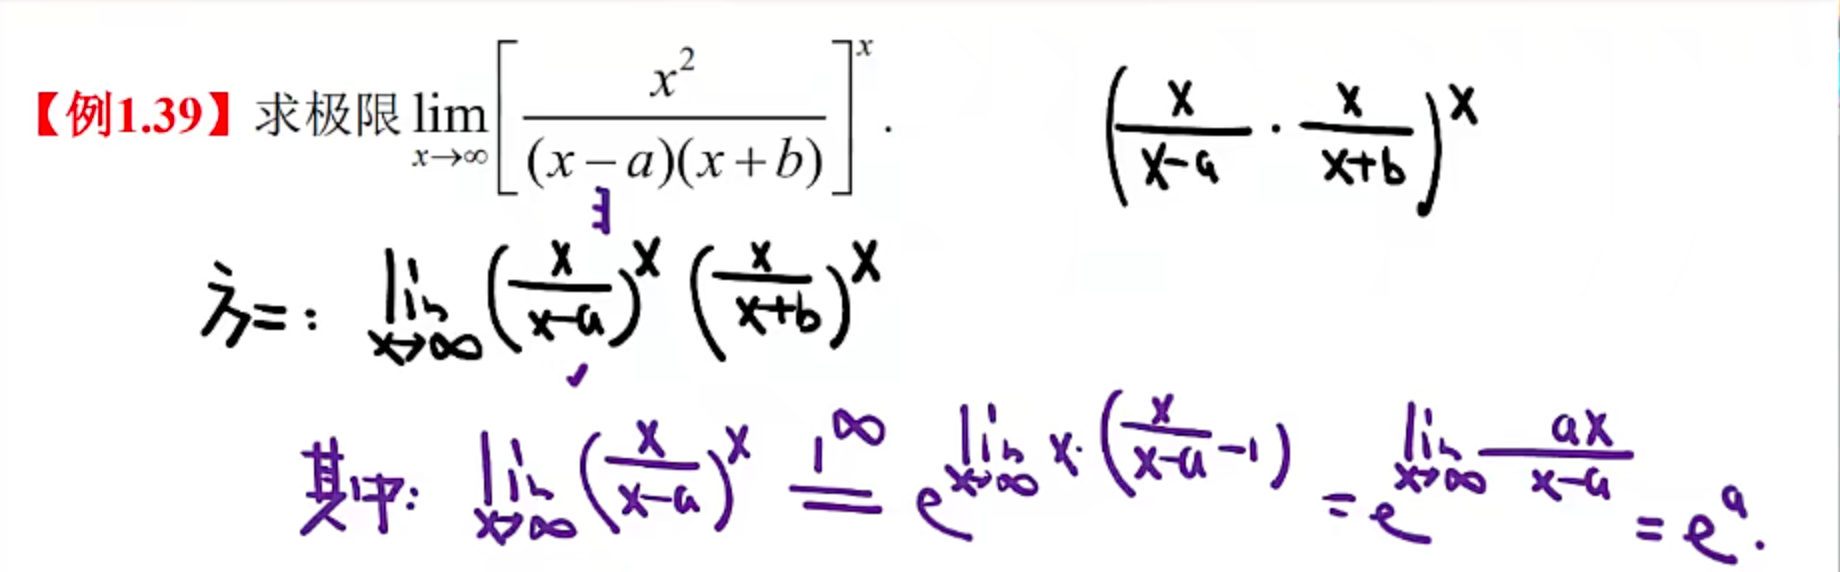 【例1.39】求极限 $\lim_{x \to \infty} \left[ \frac{x^2}{(x-a)(x+b)} \right]^x$. $\left( \frac{x}{x-a} \cdot \frac{x}{x+b} \right)^x$
∃
方二: $\lim_{x \to \infty} \left( \frac{x}{x-a} \right)^x \left( \frac{x}{x+b} \right)^x$
✓
其中: $\lim_{x \to \infty} \left( \frac{x}{x-a} \right)^x \overset{1^\infty}{=} e^{\lim_{x \to \infty} x \cdot \left( \frac{x}{x-a} - 1 \right)} = e^{\lim_{x \to \infty} \frac{ax}{x-a}} = e^a.$